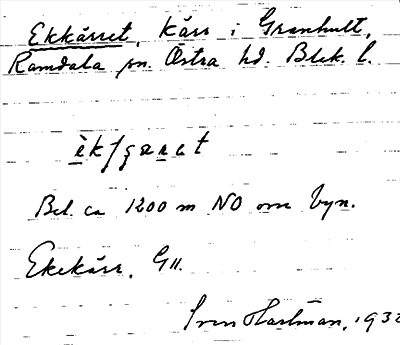 Ekkärret, Kärr i Granhult,
Ramdala sn. Östra hd. Blek. l.
Bel. ca 1200 m NO om byn.
Ekekärr, GH.
Sven Hartman, 193